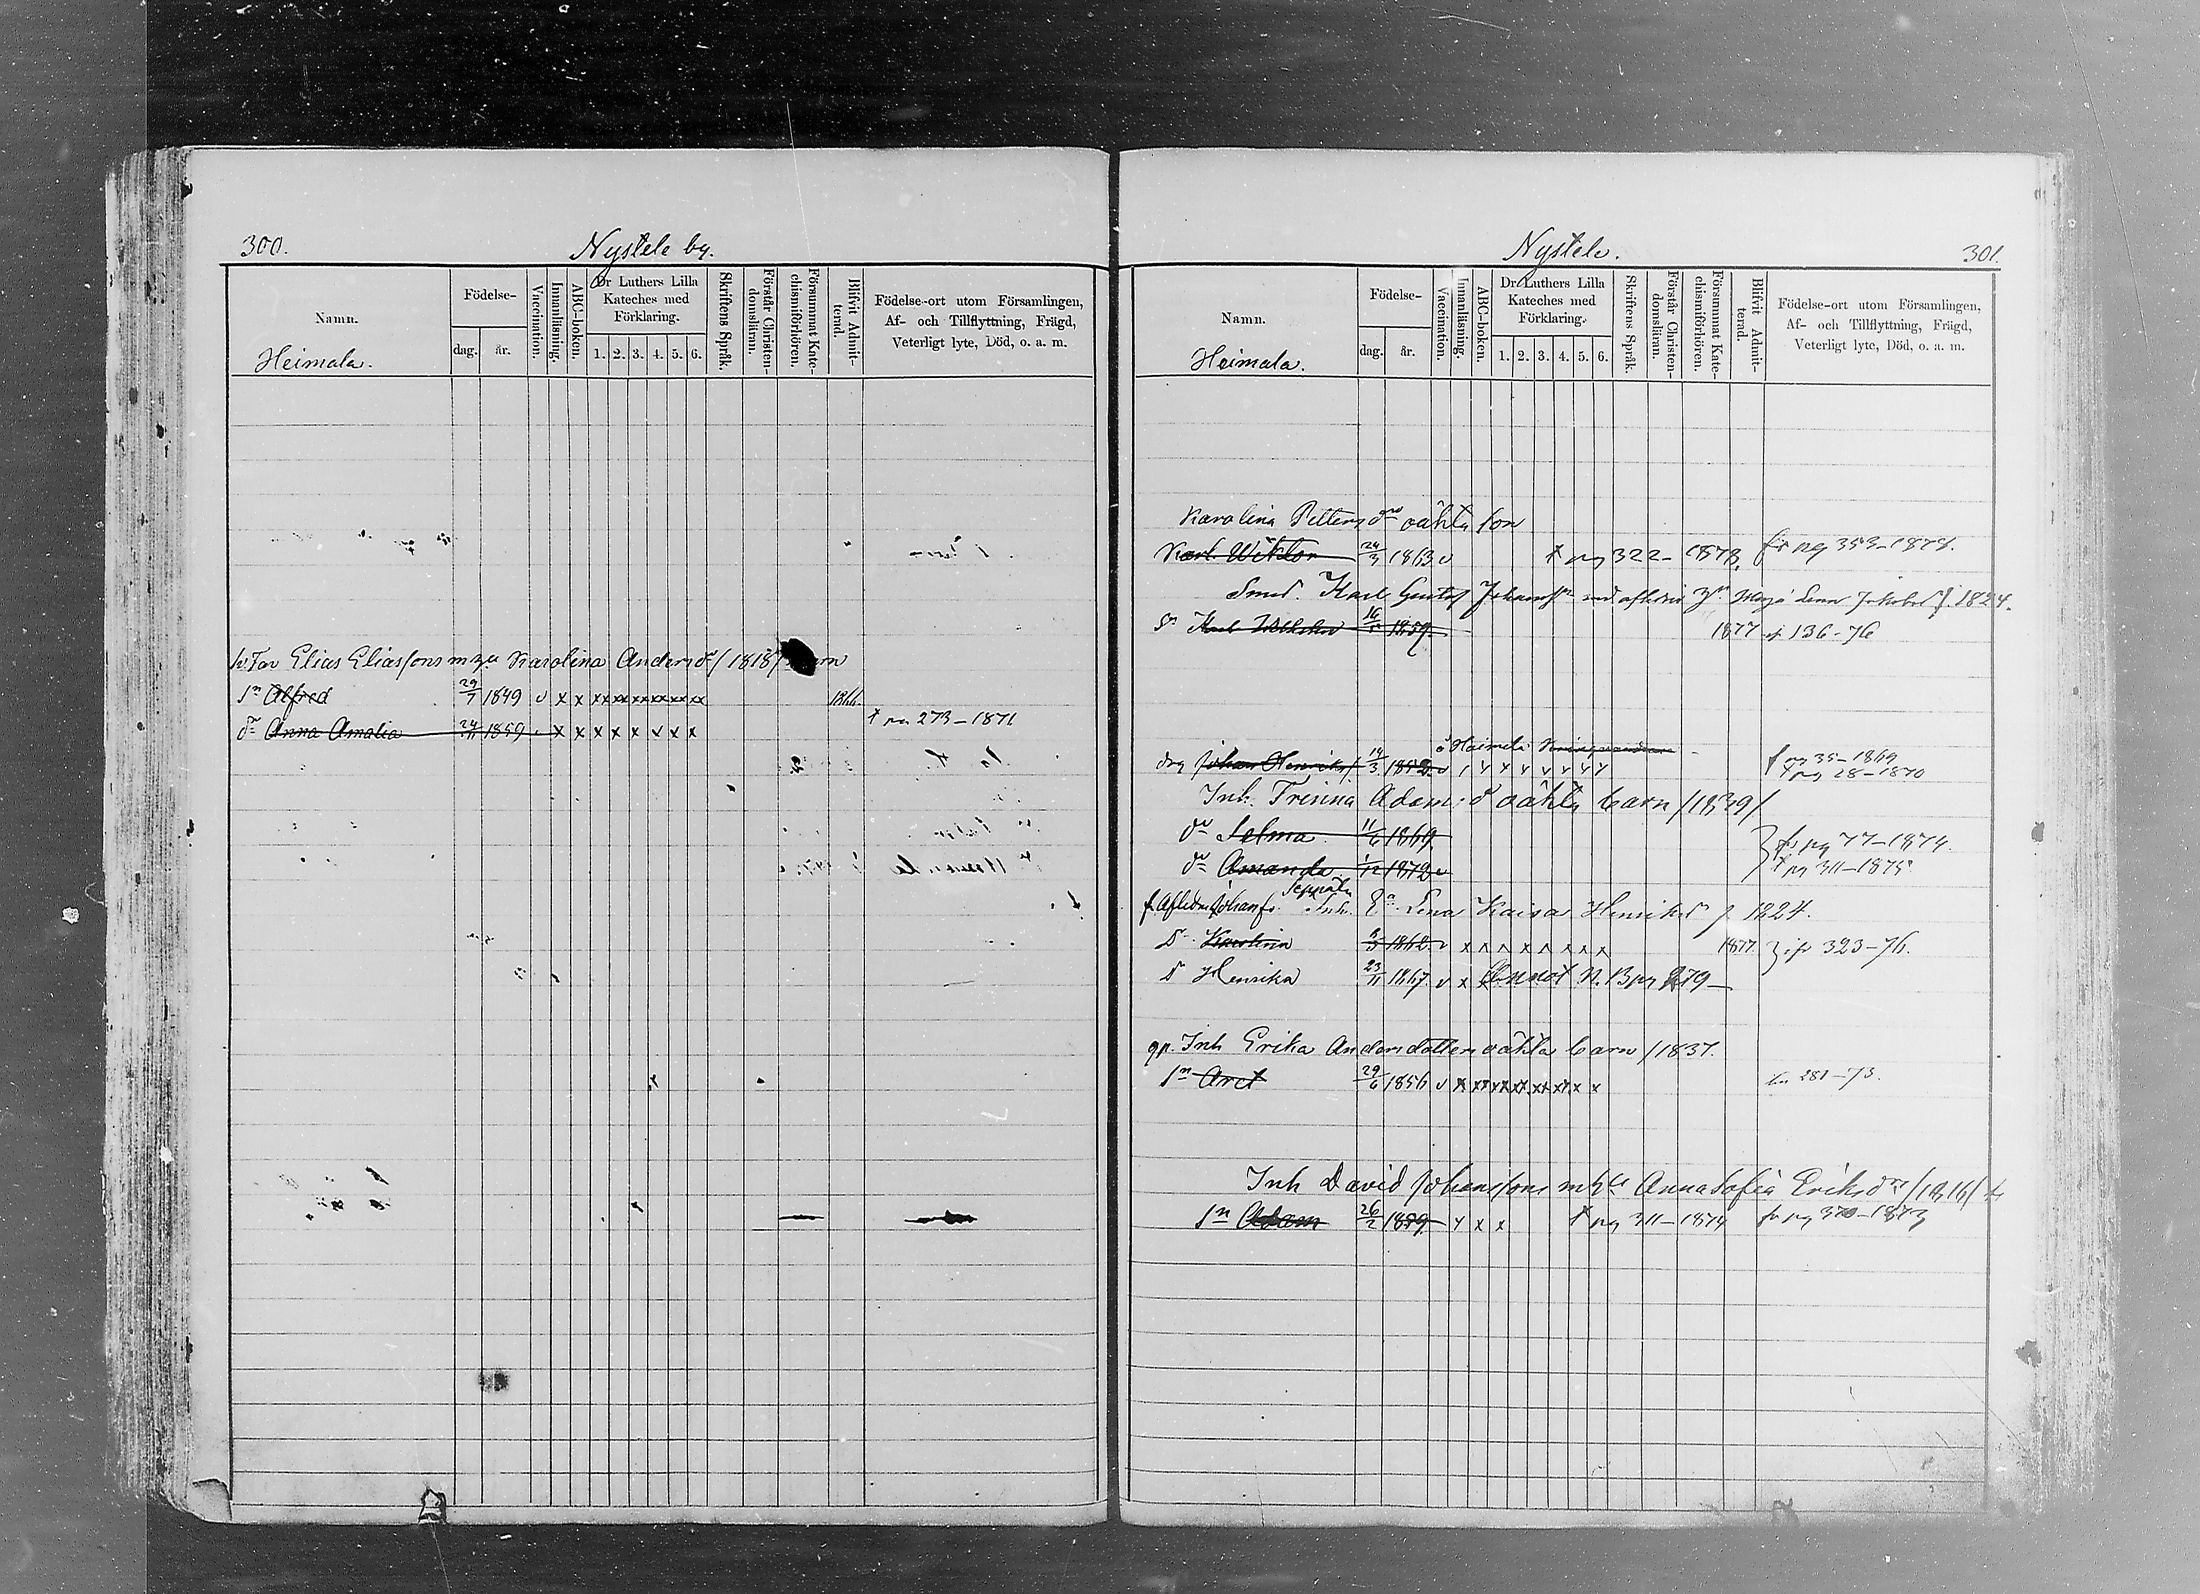 300. Nystele by.
Namn. Födelse- dag. år. Vaccination. Innanläsning. ABC-boken. Dr Luthers Lilla Kateches med Förklaring. 1. 2. 3. 4. 5. 6. Skriftens Språk. Förstår Christendomsläran. Försummat Katechismiförhören. Blifvit Admitterad. Födelse-ort utom Församlingen, Af- och Tillflyttning, Frägd, Veterligt lyte, Död, o. a. m.
Heimala.
Elias Eliassons Karolina Anders dr /1818/
Sn Alfred 29/7 1849 v x x xx xx xx xx xx xx 1866.
dr Anna Amalia 24/11 1859 v x x x x x v x x † pg 273-1871
Nystele. 301.
Namn. Födelse- dag. år. Vaccination. Innanläsning. ABC-boken. Dr Luthers Lilla Kateches med Förklaring. 1. 2. 3. 4. 5. 6. Skriftens Språk. Förstår Christendomsläran. Försummat Katechismiförhören. Blifvit Admitterad. Födelse-ort utom Församlingen, Af- och Tillflyttning, Frägd, Veterligt lyte, Död, o. a. m.
Heimala.
Karolina Petters drs oäkta son
Karl Wiktor 24/3 1863 v † pg 322-1873. fr pg 353-1874.
Smed. Karl Gustaf Lena f. 1824.
Sn Karl 16/5 1859 1877 136-76
drg Johan Henriks 14/3 1852 v pg 35-1869
pg 28-1870
Inh. Trinna Adams d oäkta barn /1839/
dr Selma 11/6 1869 fr pg 77-1874.
dr Amanda 1/12 1872 v † pg 311-1875
Seppälä
Johans. Inh. Ea Lena Kaisa Henriksd f. 1824.
D Karolina 1862 v x x x x x x x x 1877. fr 323-76.
D Henrika 23/11 1867. v x 279
gp. Inh Erika Andersdotters oäkta barn /1837.
Sn Axel 29/6 1856 v 281-73.
Inh David Johanssons m hu Anna Sofia Eriks drs
Sn Adam 26/2 1859. v x x † pg 311-1874 fr pg 370-1873